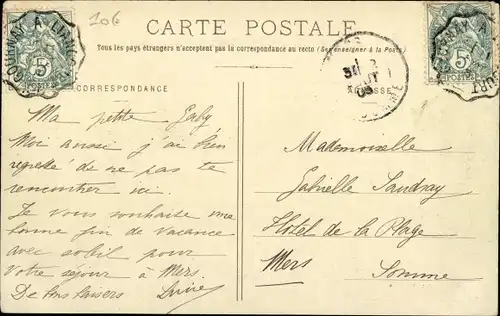 10€
CARTE POSTALE
Tous les pays étrangers n'acceptent pas la correspondance au recto (Se renseigner à la Poste)
CORRESPONDANCE
5c
POSTES
5c
POSTES
Ma petite Gaby
Moi aussi j'ai bien
regretté de ne pas te
rencontrer ici.
Je vous souhaite une
bonne fin de vacance
avec soleil pour
Votre séjour à Mers.
De bons baisers
Mademoiselle
Gabrielle
Hôtel de la Plage
Mers Somme